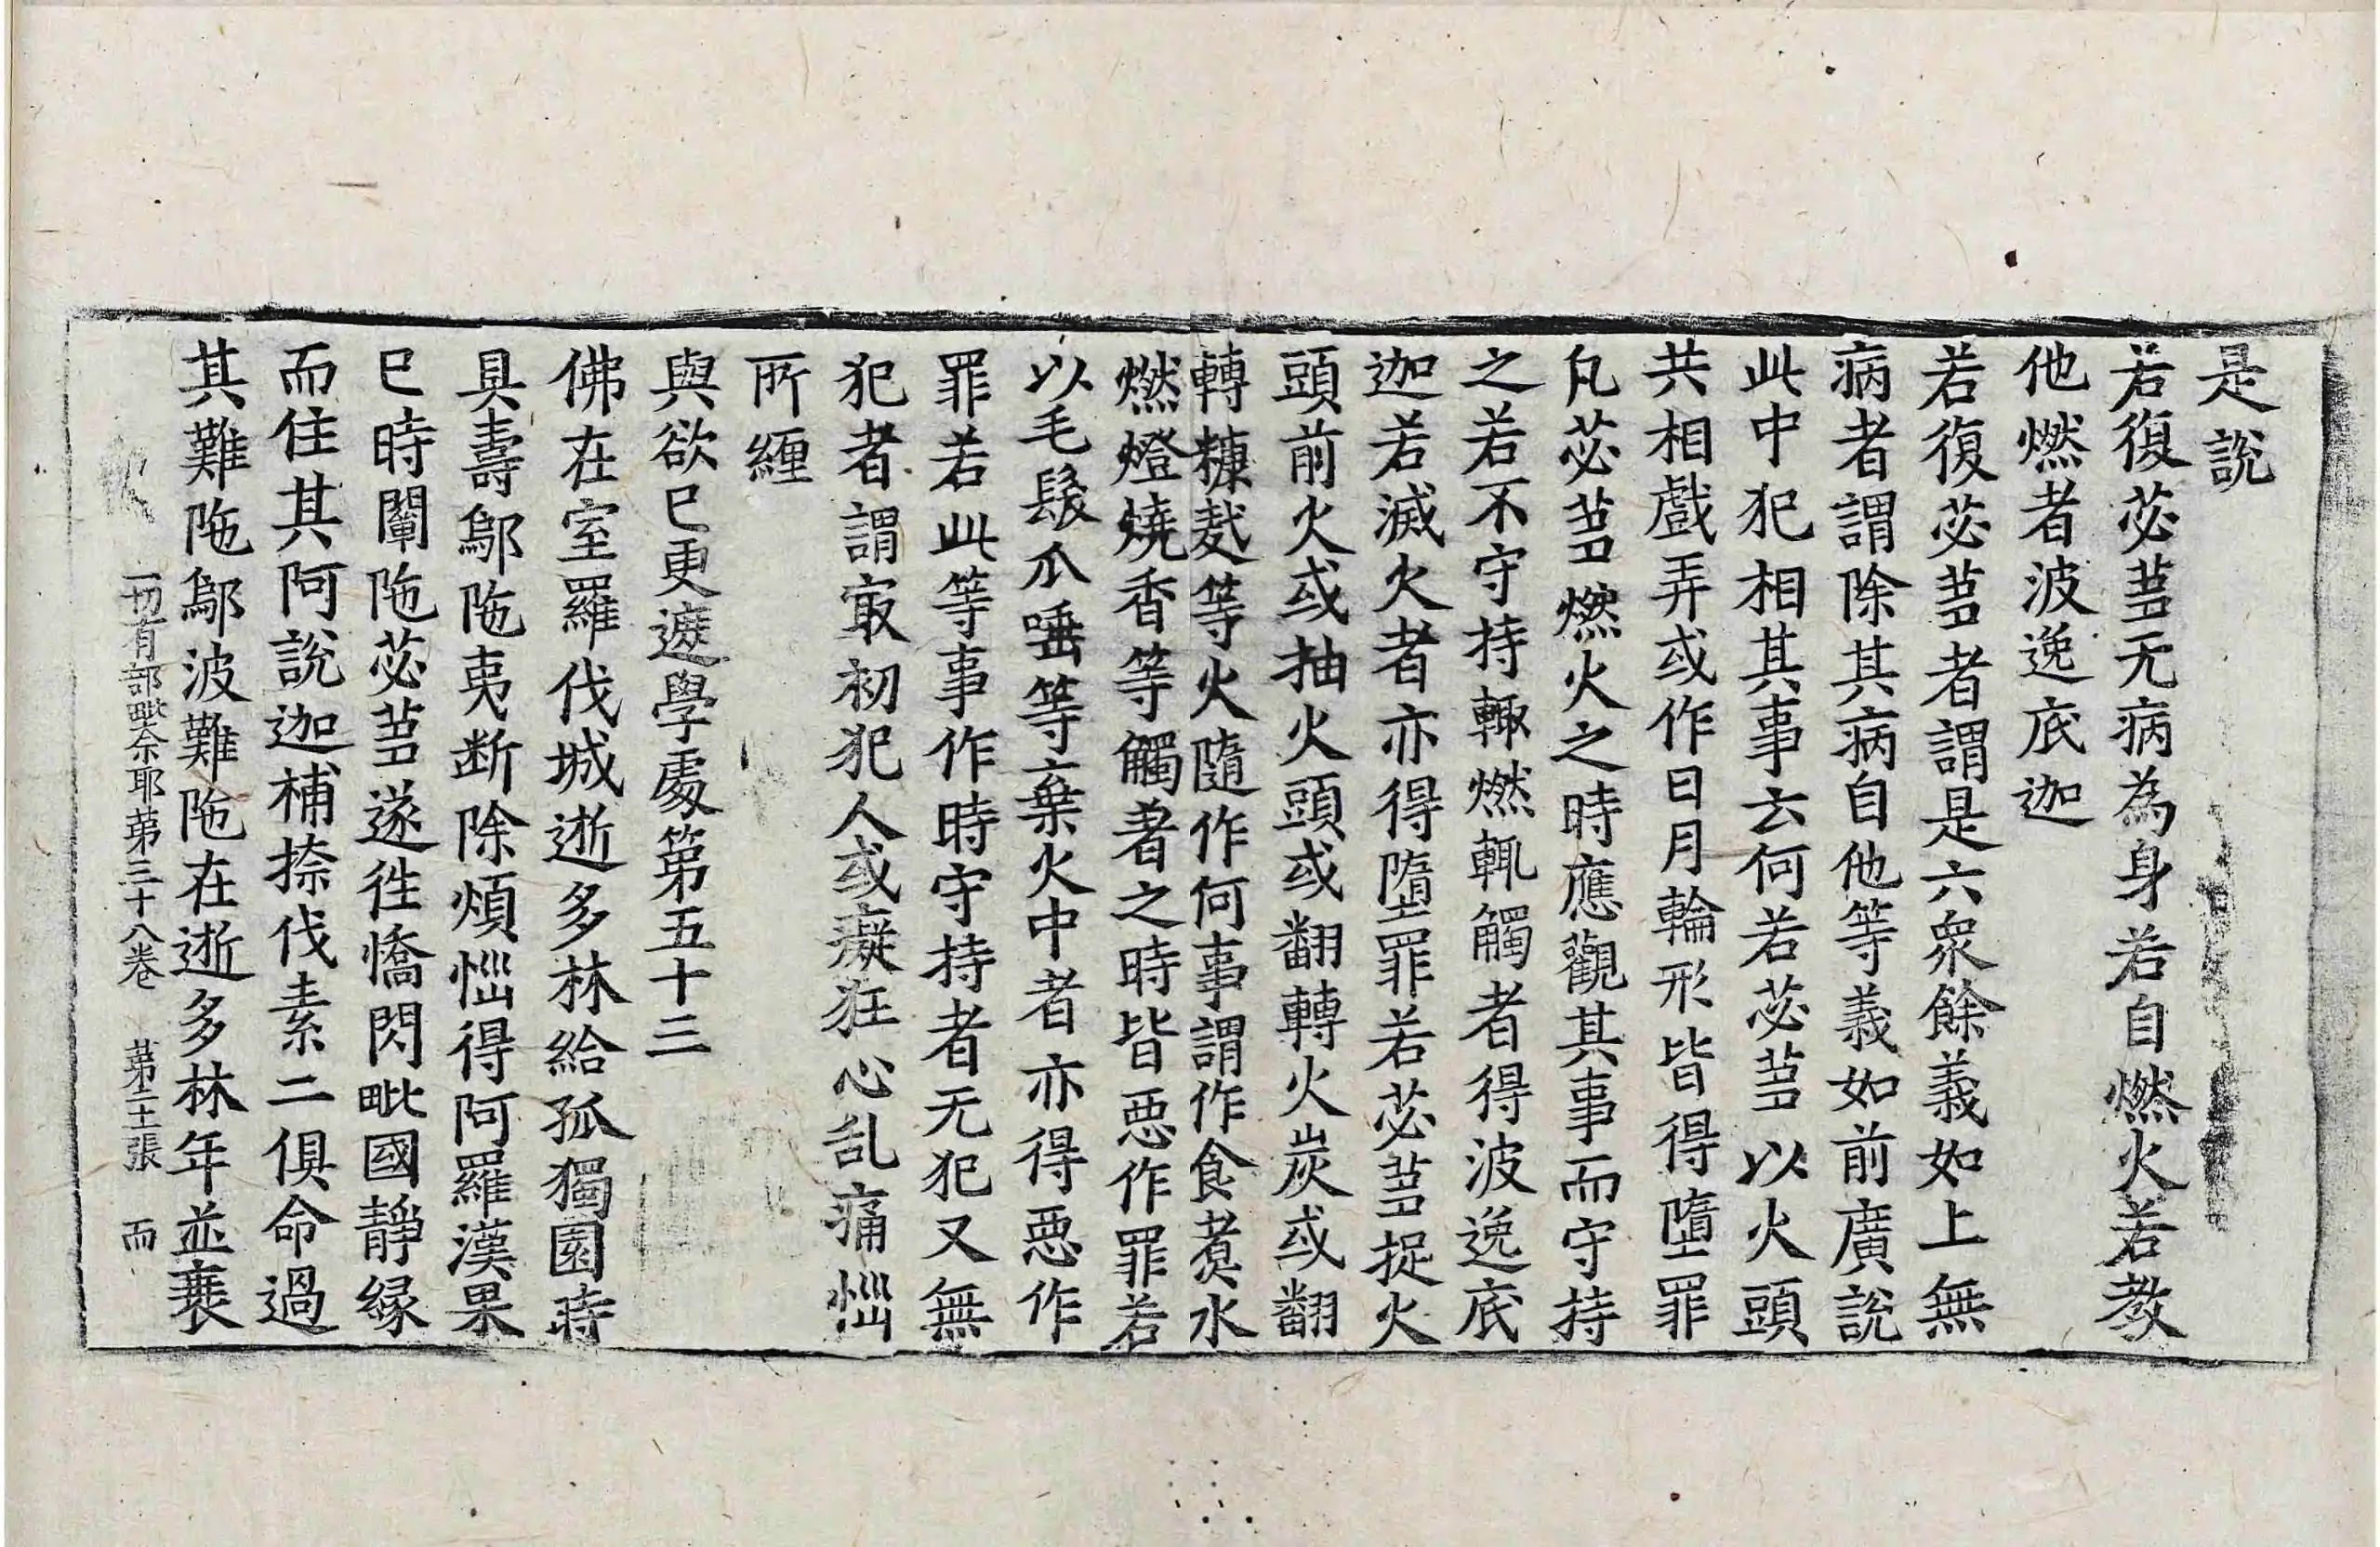 是說
若復苾蒭无病為身若自燃火若教
他燃者波逸底迦
若復苾蒭者謂是六衆餘義如上無
病者謂除其病自他等義如前廣說
此中犯相其事云何若苾蒭以火頭
共相戲弄或作日月輪形皆得墮罪
凡苾蒭燃火之時應觀其事而守持
之若不守持輙燃輒觸者得波逸底
迦若滅火者亦得墮罪若苾蒭捉火
頭前火或抽火頭或翻轉火炭或翻
轉糠麸等火隨作何事謂作食煑水
燃燈燒香等觸著之時皆惡作罪若
以毛髮爪唾等棄火中者亦得惡作
罪若此等事作時守持者无犯又無
犯者謂冣初犯人或癡狂心乱痛惱
所纏
與欲已更遮學處第五十三
佛在室羅伐城逝多林給孤獨園時
具壽鄔陁夷断除煩惱得阿羅漢果
已時闡陁苾蒭遂徃憍閃毗國靜縁
而住其阿說迦補捺伐素二俱命過
其難陁鄔波難陁在逝多林年並衰
一切有部毗奈耶第三十八卷 第二十張 而